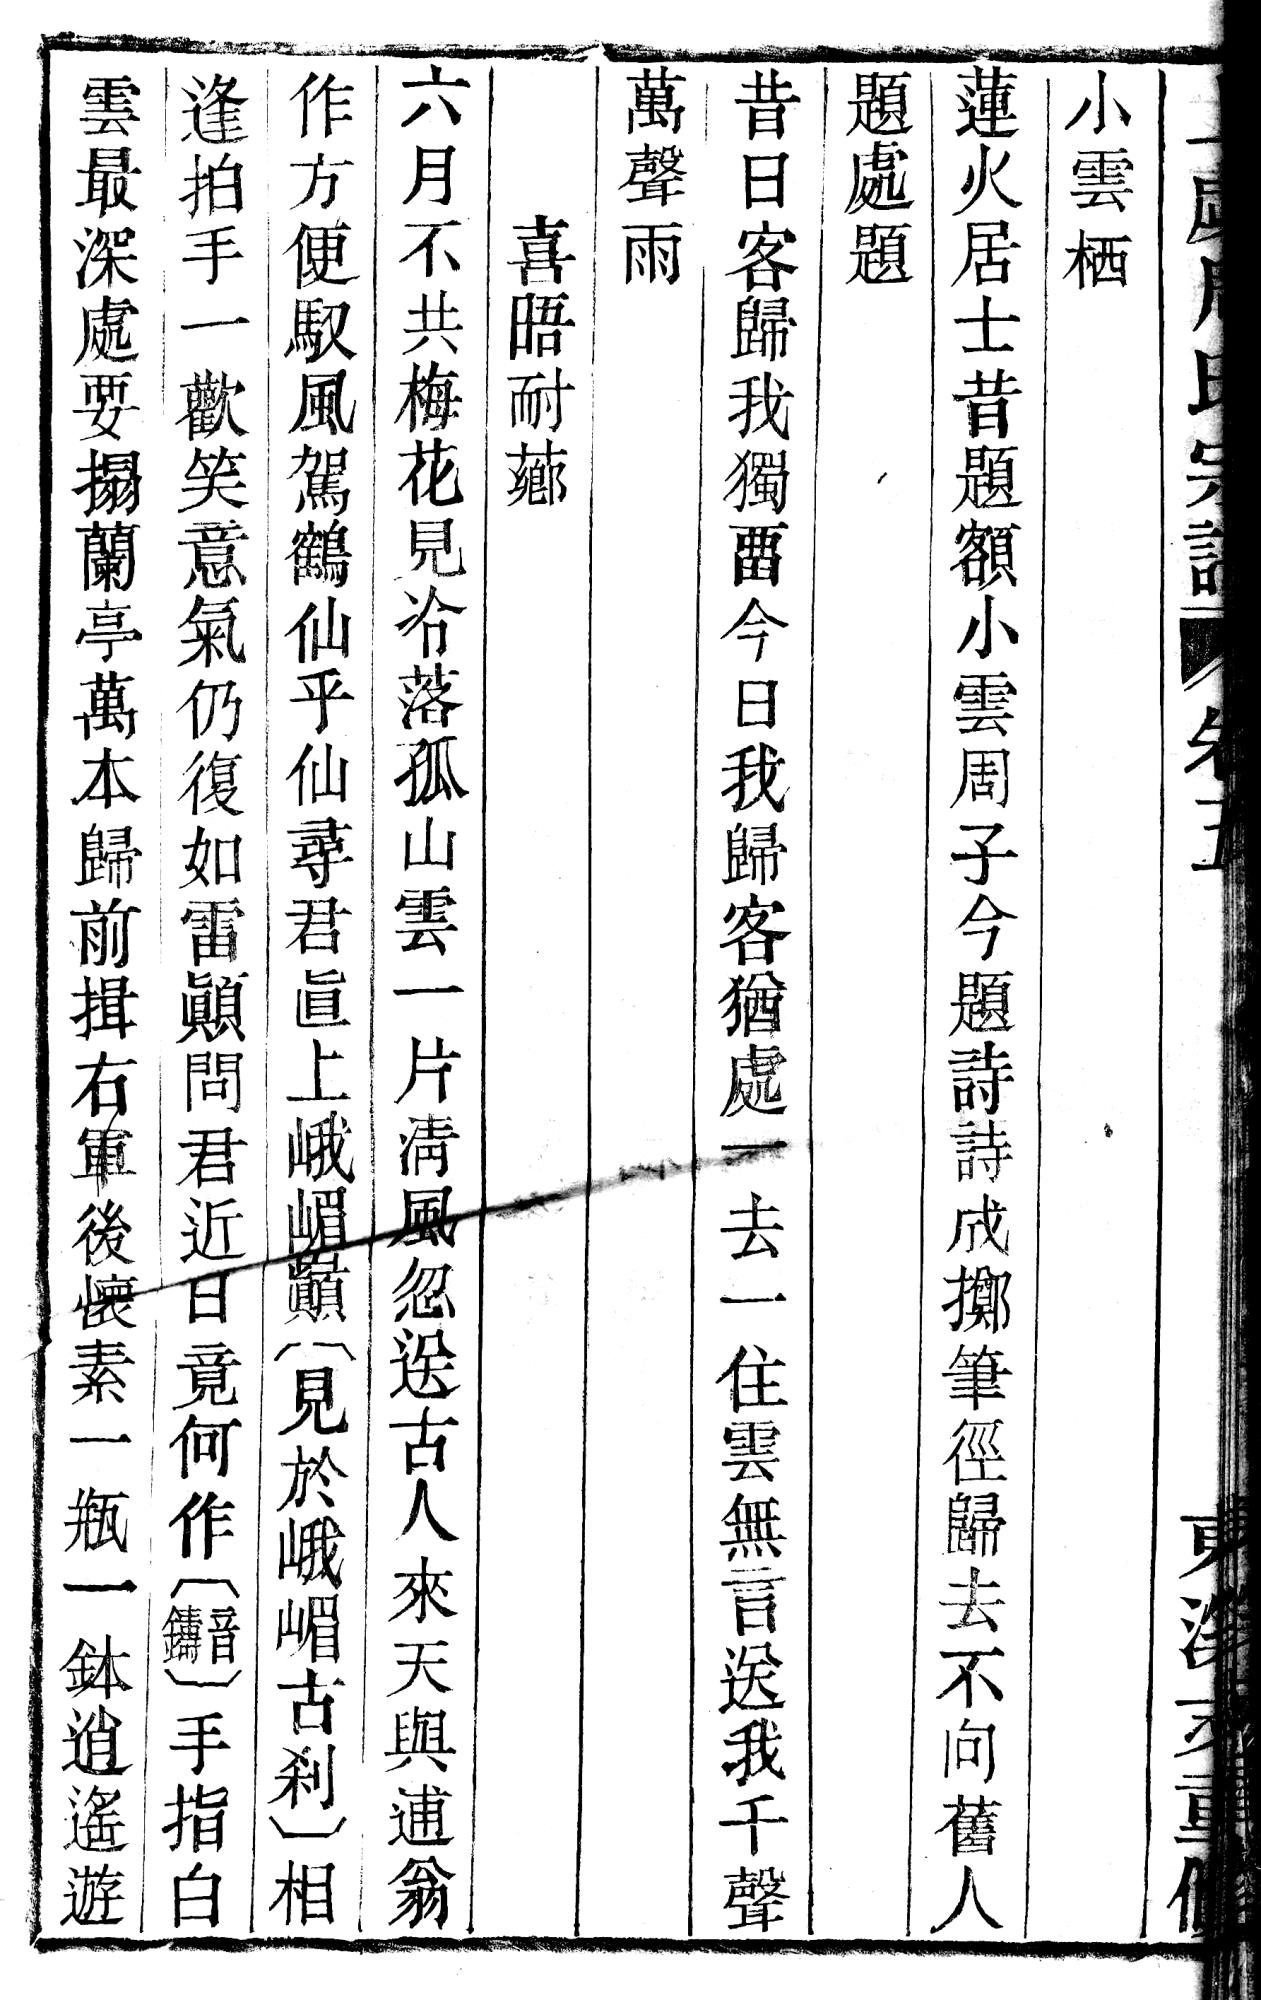 周氏宗譜 卷五
小雲栖
蓮火居士昔題額小雲周子今題詩詩成擲筆徑歸去不向舊人
題處題
昔日客歸我獨畱今日我歸客猶處一去一住雲無言送我千聲
萬聲雨
喜晤耐薌
六月不共梅花見冷落孤山雲一片清風忽送古人來天與逋翁
作方便馭風駕鶴仙乎仙尋君眞上峨嵋巔〔見於峨嵋古刹〕相
逢拍手一歡笑意氣仍復如雷顚問君近日竟何作〔音鑄〕手指白
雲最深處要搨蘭亭萬本歸前揖右軍後懷素一瓶一鉢逍遙遊